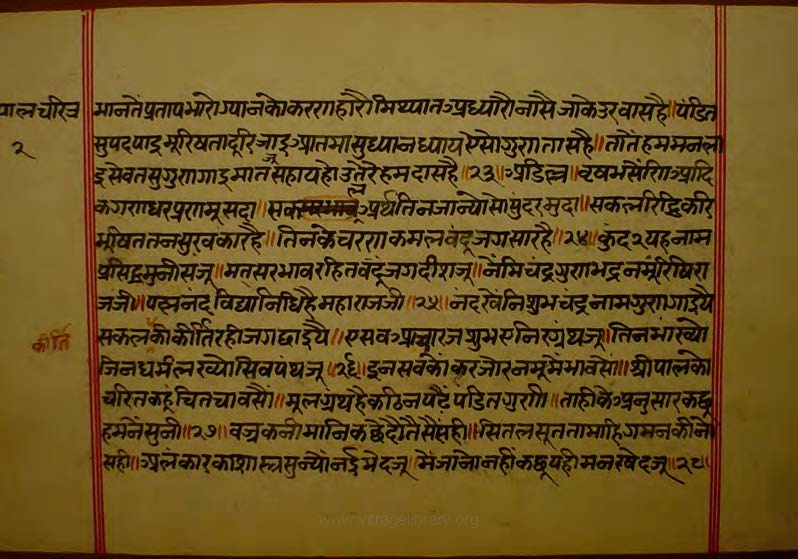 पालचरित्र
२
मानतैं प्रताप भारोग्यानको करणहारौ मिथ्यात अप्रध्यारौ नासै जाके उरवास है॥ पंडित
सुपद पाइ मूरिषता दूरि जाइ आतमा सुध्यान ध्याय एसो गुरगता सहै॥ तातैं हम मनला
इ सेवत सुगुरगगाइ मात सहाय हो उतेरे हम दास है॥२३॥ अडिल्ल॥ वृषभसेंरिग आदि
क गराधर प्ररामू सदा॥ सकल अर्थ तिन जान्यो सो सुंदर मुदा॥ सकल रिद्धि करि
भूषित तन सुखकार है॥ तिनके चररा कमल वंदू जगसार है॥२४॥ कुंद २ यह नाम
प्रसिद्ध मुनीसजू॥ मतसर भाव रहित वंदूं जगदीशजू॥ नेमिचंद्र गुराभद्र नमूं रिषिरा
जजी॥ पद्मनंद विद्यानिधि है महाराजजी॥२५॥ नंद रवेनि शुभचंद्र नाम गुरागाइयै
सकलकी कीर्ति रही जगछाइयै॥ ए सव आचारज शुभए निरग्रंथजू॥ तिन भाख्यो
कीर्ति
जिनधर्म लख्यो सिवपंथजू॥२६॥ इन सवकौं कर जोर नमूं मैं भावसौं॥ श्रीपालको
चरित कहूं चित चावसौं॥ मूल ग्रंथ है कठिन पढैं पंडित गुरगी॥ ताही कै अनुसार कछू
हमनें सुनी॥२७॥ वज्रकनी मानिक छेदे तैसैं सही॥ सितल सूत तामाहि गमन कीनो
सही॥ अलंकार का शास्त्र सुन्यौं नई भेदजू॥ मैं जानो नही कछू यही मन खेदजू॥२८॥
www.vitragelibrary.org